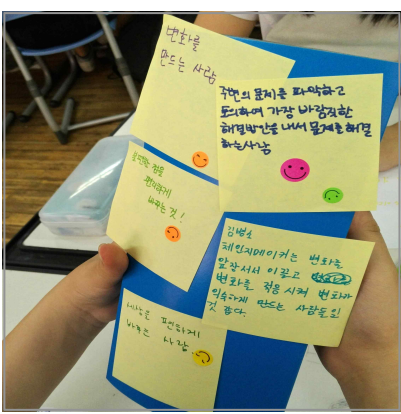 변화를
만드는 사람
주변의 문제를 파악하고
토의하여 가장 바람직한
해결방안을 내서 문제를 해결
하는 사람
불편한 점을
편리하게
바꾸는 것!
체인지메이커는 변화를
앞장서서 이끌고
변화를 적응시켜 변화가
익숙하게 만드는 사람들일
것 같다.
세상을 편하게
바꾸는 사람.